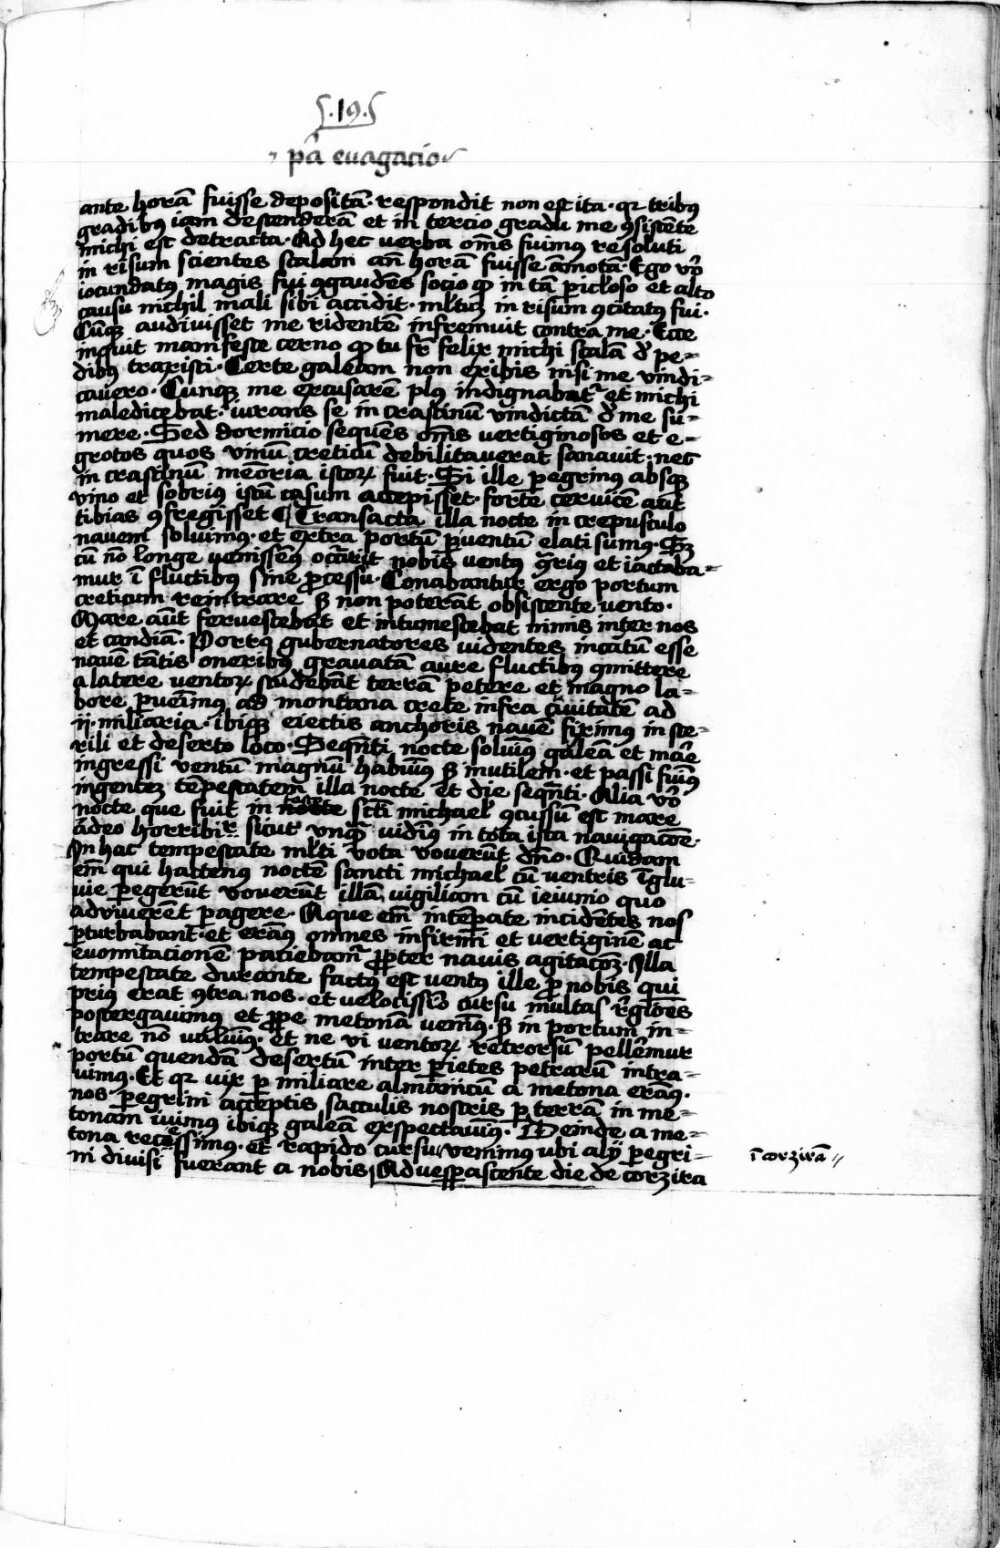 .19.
pᷓa euagacio
ante horā fuisse depositā. respondit non est ita. qr tribus
gradibus iam descenderā et in tercio gradu me ꝯsistēte
michi est detracta. Ad hec verba om̄s fuimus resoluti
in risum scientes scalam an̄ horā fuisse āmotā. Ego vͦ
iocundatus magis fui ꝯgaudēs socio ꝙ in tā pericl'oso et alto
causu nichil mali sibi accidit. ml'tuꝫ in risum ꝯcitatus fui.
Cūqꝫ audiuisset me ridentē infremuit contra me. Ecce
inquit manifeste cerno ꝙ tu fr̄ felix michi scalā d' pe-
dibus traxisti. Certe galeam non exibis nisi me vindi-
cauero. Cunqꝫ me excusarē plus indignabat᷑ et michi
maledicebat. iurans se in crastinū vindictā d' me su-
mere. Sed dormicio sequēs om̄s vertiginosos et e-
grotos quos vinū creticū debilitauerat sanauit. nec
in crastinū memoria istoꝝ fuit. Si ille peregrinus absqꝫ
vino et sobrius istū casum accepisset. forte ceruicē aut
tibias ꝯfregisset Transacta illa nocte in crepusculo
nauem soluimus. et extra portū ꝑ ventum elati sumus. Sꝫ
cū nō longe venissemus occurrit nobis ventus ꝯtrarius et iactaba-
mur ī fluctibus sine ꝓcessu. Conabantur ergo portum
creticum reintrare sꝫ non poterāt obsistente vento.
Mare aūt feruescebat et intumescebat nimis inter nos
et candiā. Portus gubernatores videntes incautū esse
nauē tātis oneribus grauatā aure fluctibus ꝯmittere
a latere ventoꝝ studebāt terrā petere et magno la-
bore ꝑuenimus ad montana crete infra ciuitatē ad
ij. miliaria. ibiqꝫ eiectis anchoris nauē fiximus in ste-
rili et deserto loco. Sequēti nocte soluimus galeā et mare
ingressi ventū magnū habuimus sꝫ inutilem. et passi fuimus
ingentem tēpestatem illa nocte et die sequēti. Alia vͦ
nocte que fuit in nocte scti michael' ꝯcussū est mare
adeo horribilit᷑ sicut vnqᷓ vidimus in tota ista nauigacōe.
In hac tempestate ml'ti vota vouerūt dn̄o. Quidam
em̄ qui hactenus noctē sancti michael' cū ventris īglu-
uie ꝑegerūt vouerūt illā vigiliam cū ieiunio quo
aduiuerēt ꝑagere. Aque em̄ intēperate incidētes nos
ꝑturbabant. et eramus omnes infirmi et vertiginē ac
euomitacionē paciebamur ꝓpter nauis agitacōꝫ. Illa
tempestate durante factus est ventus ille ꝑ nobis qui
prius erat ꝯtra nos. et velocissīo cursu multas regiōes
postergauimus et ꝓpe metonā venimus. sꝫ in portum in-
trare nō valuimus. et ne vi ventoꝝ retrorsū pellemur
portū quendā desertū inter ꝑietes petrarū intra-
uimus. Et qr vix ꝑ miliare almanicū a metona eramus.
nos peregrini acceptis sacculis nostris ꝑ terrā in me-
tonam iuimus ibiqꝫ galeā exspectauimus. Deinde a me-
tona recessimus. et rapido cursu venimus ubi alij peregri-
ni diuisi fuerant a nobis Aduesꝑascente die de corzira
ī corzirā